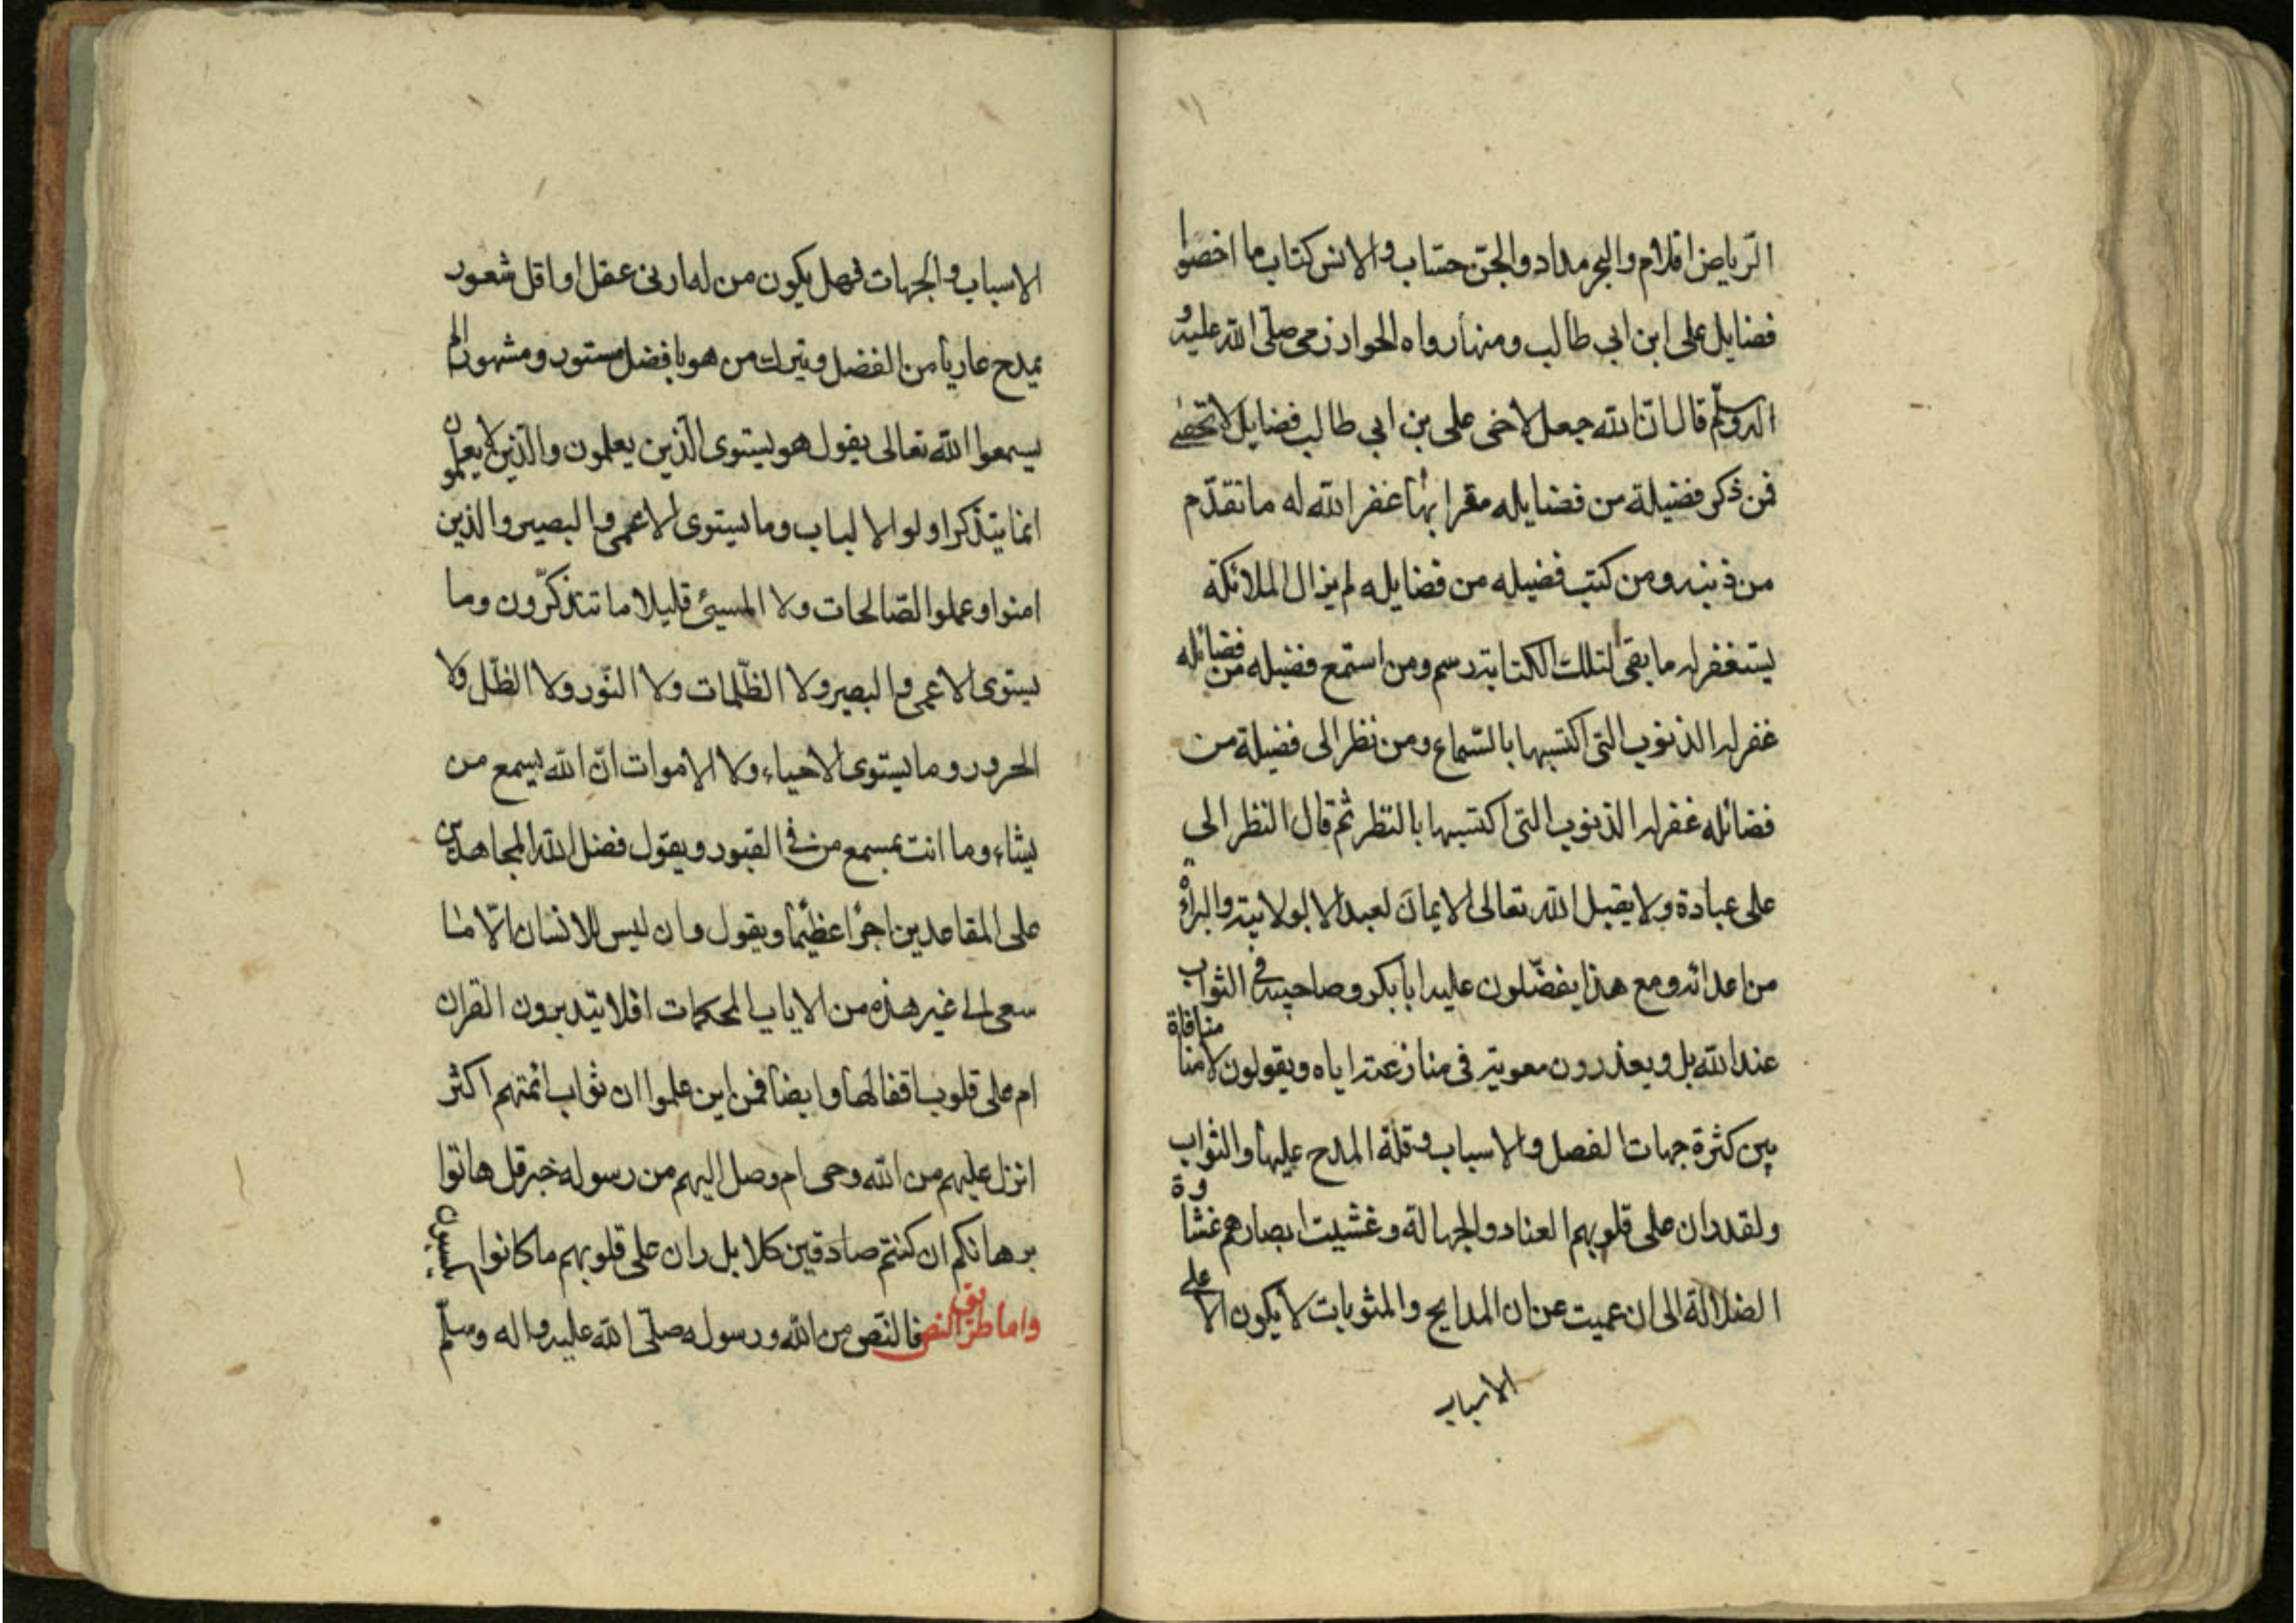 الرّياض اقلام والبحر مداد والجنّ حسّاب والانس كتاب ما احصوا
فضايل على ابن ابي طالب ومنها رواه الخوارزمى صلّى الله عليه و
اله وسلّم قال انّ الله جعل لاخى على بن ابي طالب فضايل لا تحصى
فمن ذكر فضيلة من فضايله مقرا بها غفر الله له ما تقدّم
من ذنبه ومن كتب فضيله من فضايله لم يزال الملائكة
يستغفر له ما بقى لتلك الكتابة رسم ومن استمع فضيله من فضائله
غفر له الذنوب التى اكتسبها بالسّماع ومن نظر الى فضيلة من
فضائله غفر له الذنوب التى اكتسبها بالنّظر ثم قال النظر الى
على عبادة ولا يقبل الله تعالى الايمان لعبد الا بولايته والبراءة
من اعدائه ومع هذا يفضّلون عليه ابا بكر وصاحبيه فى الثواب
عند الله بل ويعذرون معوية فى منازعته اياه ويقولون لا منا منافاة
بين كثرة جهات الفصل والاسباب وقلة المدح عليها والثواب
ولقد ران على قلوبهم العناد والجهالة وغشيت ابصارهم غشاوة
الضلالة الى ان عميت عن ان المدايح والمثوبات لا يكون الا على
الاسباب
الاسباب والجهات فهل يكون من له ادنى عقل او اقل شعور
يمدح عاريا من الفضل ويترك من هو بافضل مستور ومشهور الم
يسمعوا الله تعالى يقول هو يستوى الّذين يعلمون والّذين لا يعلمون
انما يتذكر اولوا الالباب وما يستوى الاعمى والبصير والذين
امنوا وعملوا الصّالحات ولا المسيئ قليلا ما تتذكّرون وما
يستوى الاعمى والبصير ولا الظّلمات ولا النّور ولا الظّل ولا
الحرور وما يستوى الاحياء ولا الاموات انّ الله يسمع من
يشاء وما انت بمسمع من فى القبور ويقول فضل الله المجاهدين
على المقاعدين اجرًا عظيمًا ويقول وان ليس للانسان الّا ما
سعى الى غير هذه من الايات المحكمات افلا يتدبرون القران
ام على قلوب اقفالها وايضا فمن اين علموا ان ثواب ائمتهم اكثر
انزل عليهم من الله وحى ام وصل اليهم من رسوله خبر قل هاتوا
برهانكم ان كنتم صادقين كلا بل ران على قلوبهم ما كانوا يكسبون
واما طريق النص فالنّص من الله ورسوله صلّى الله عليه واله وسلّم